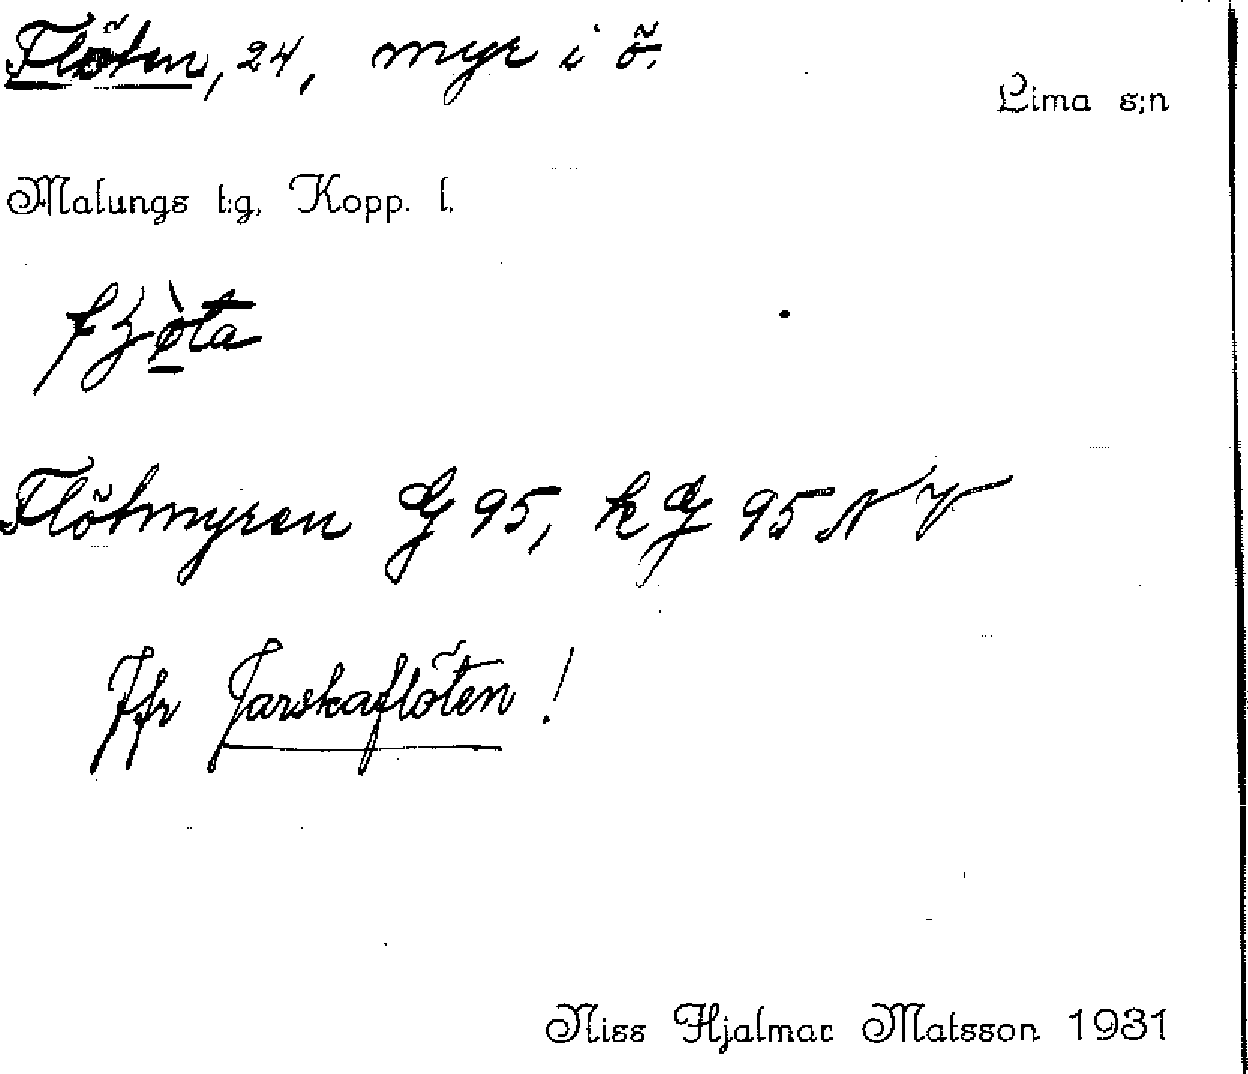 Flöten, 24, myr i ö.
Lima s:n
Malungs t:g, Kopp. l.
Flötmyren G 95, k G 95 NV
Jfr Tarskaflöten!
Niss Hjalmar Matsson 1931